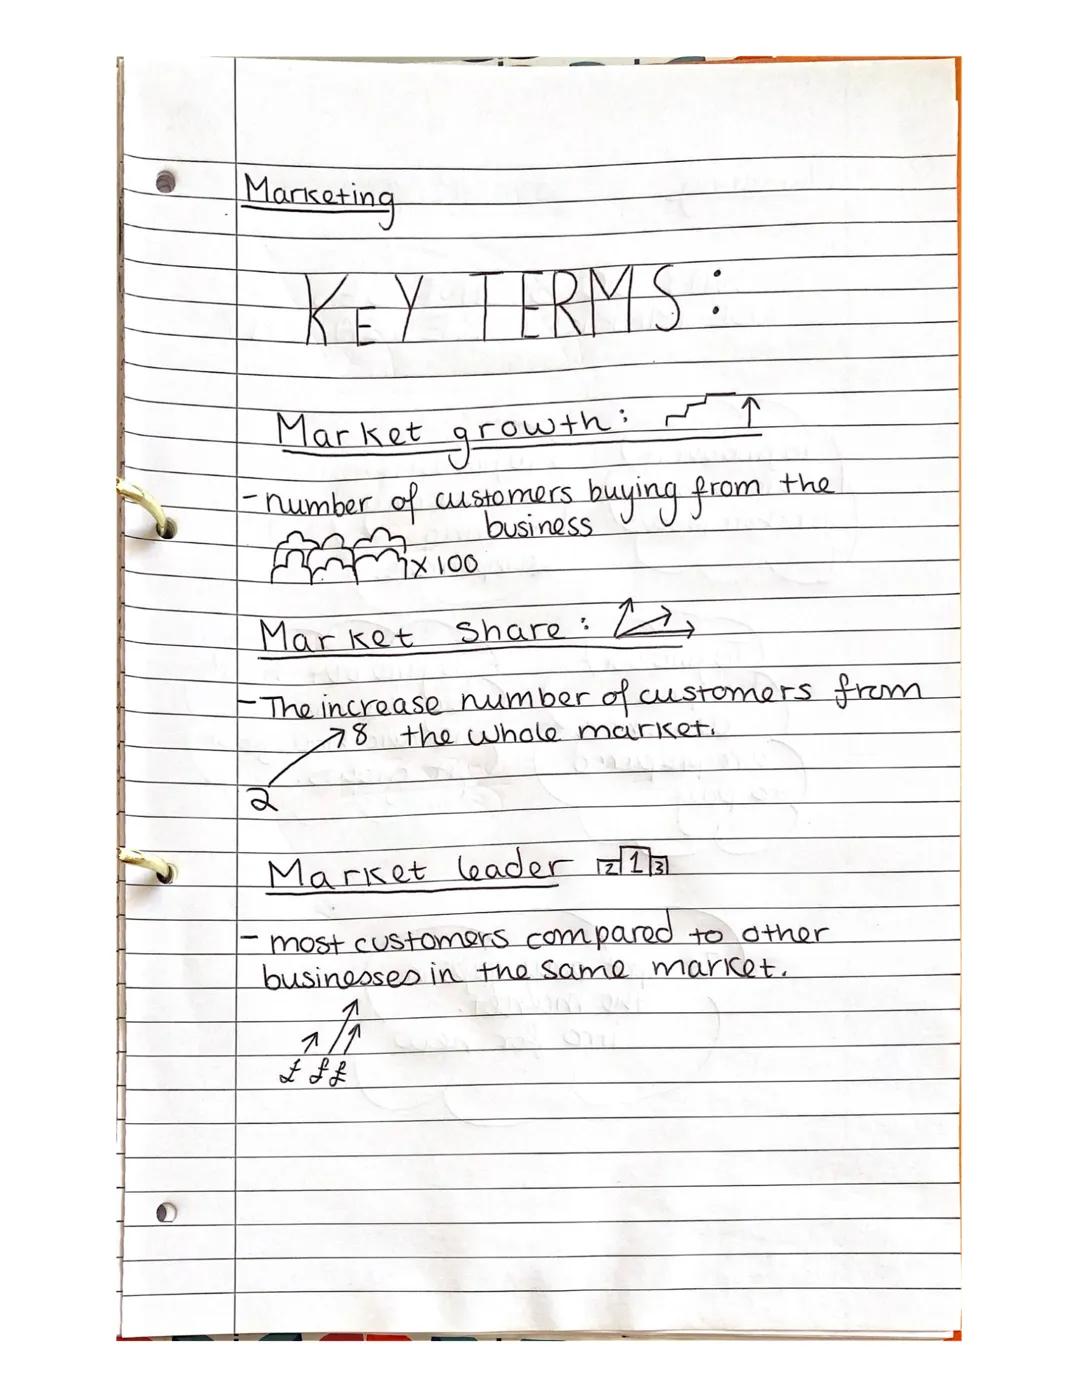 Marketing
KEY TERMS:
Market growth:
- number of customers buying from the
business
x 100
Market Share:
- The increase number of customers from
8 the whole market.
2
Market leader 2 1 3
- most customers compared to other
businesses in the same market.
£ £ £